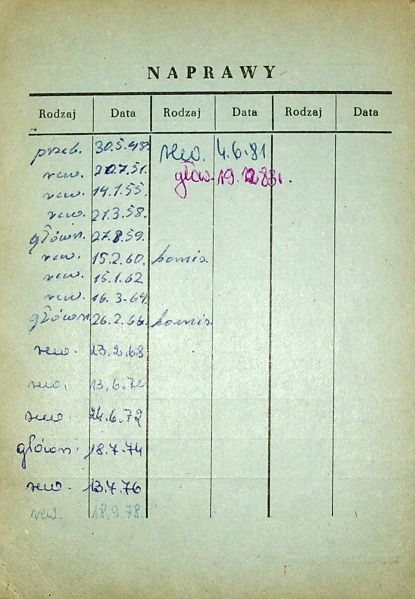 NAPRAWY
Rodzaj Data Rodzaj Data Rodzaj Data
przeb. 30.5.48. rew. 4.6.81
rew. 20.7.51. głów. 19.12.83r.
rew. 14.1.55.
rew. 21.3.58.
główn. 27.8.59.
rew. 15.2.60. komis.
rew. 15.1.62
rew. 16.3.64.
główn. 26.2.66. komis.
rew. 23.2.68
rew. 13.6.70
rew. 24.6.72
główn. 18.7.74
rew. 13.7.76
rew. 18.9.78.